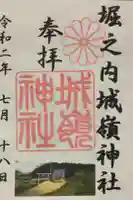 堀之内城嶺神社
奉拝
城嶺
神社
令和二年 七月 十八日